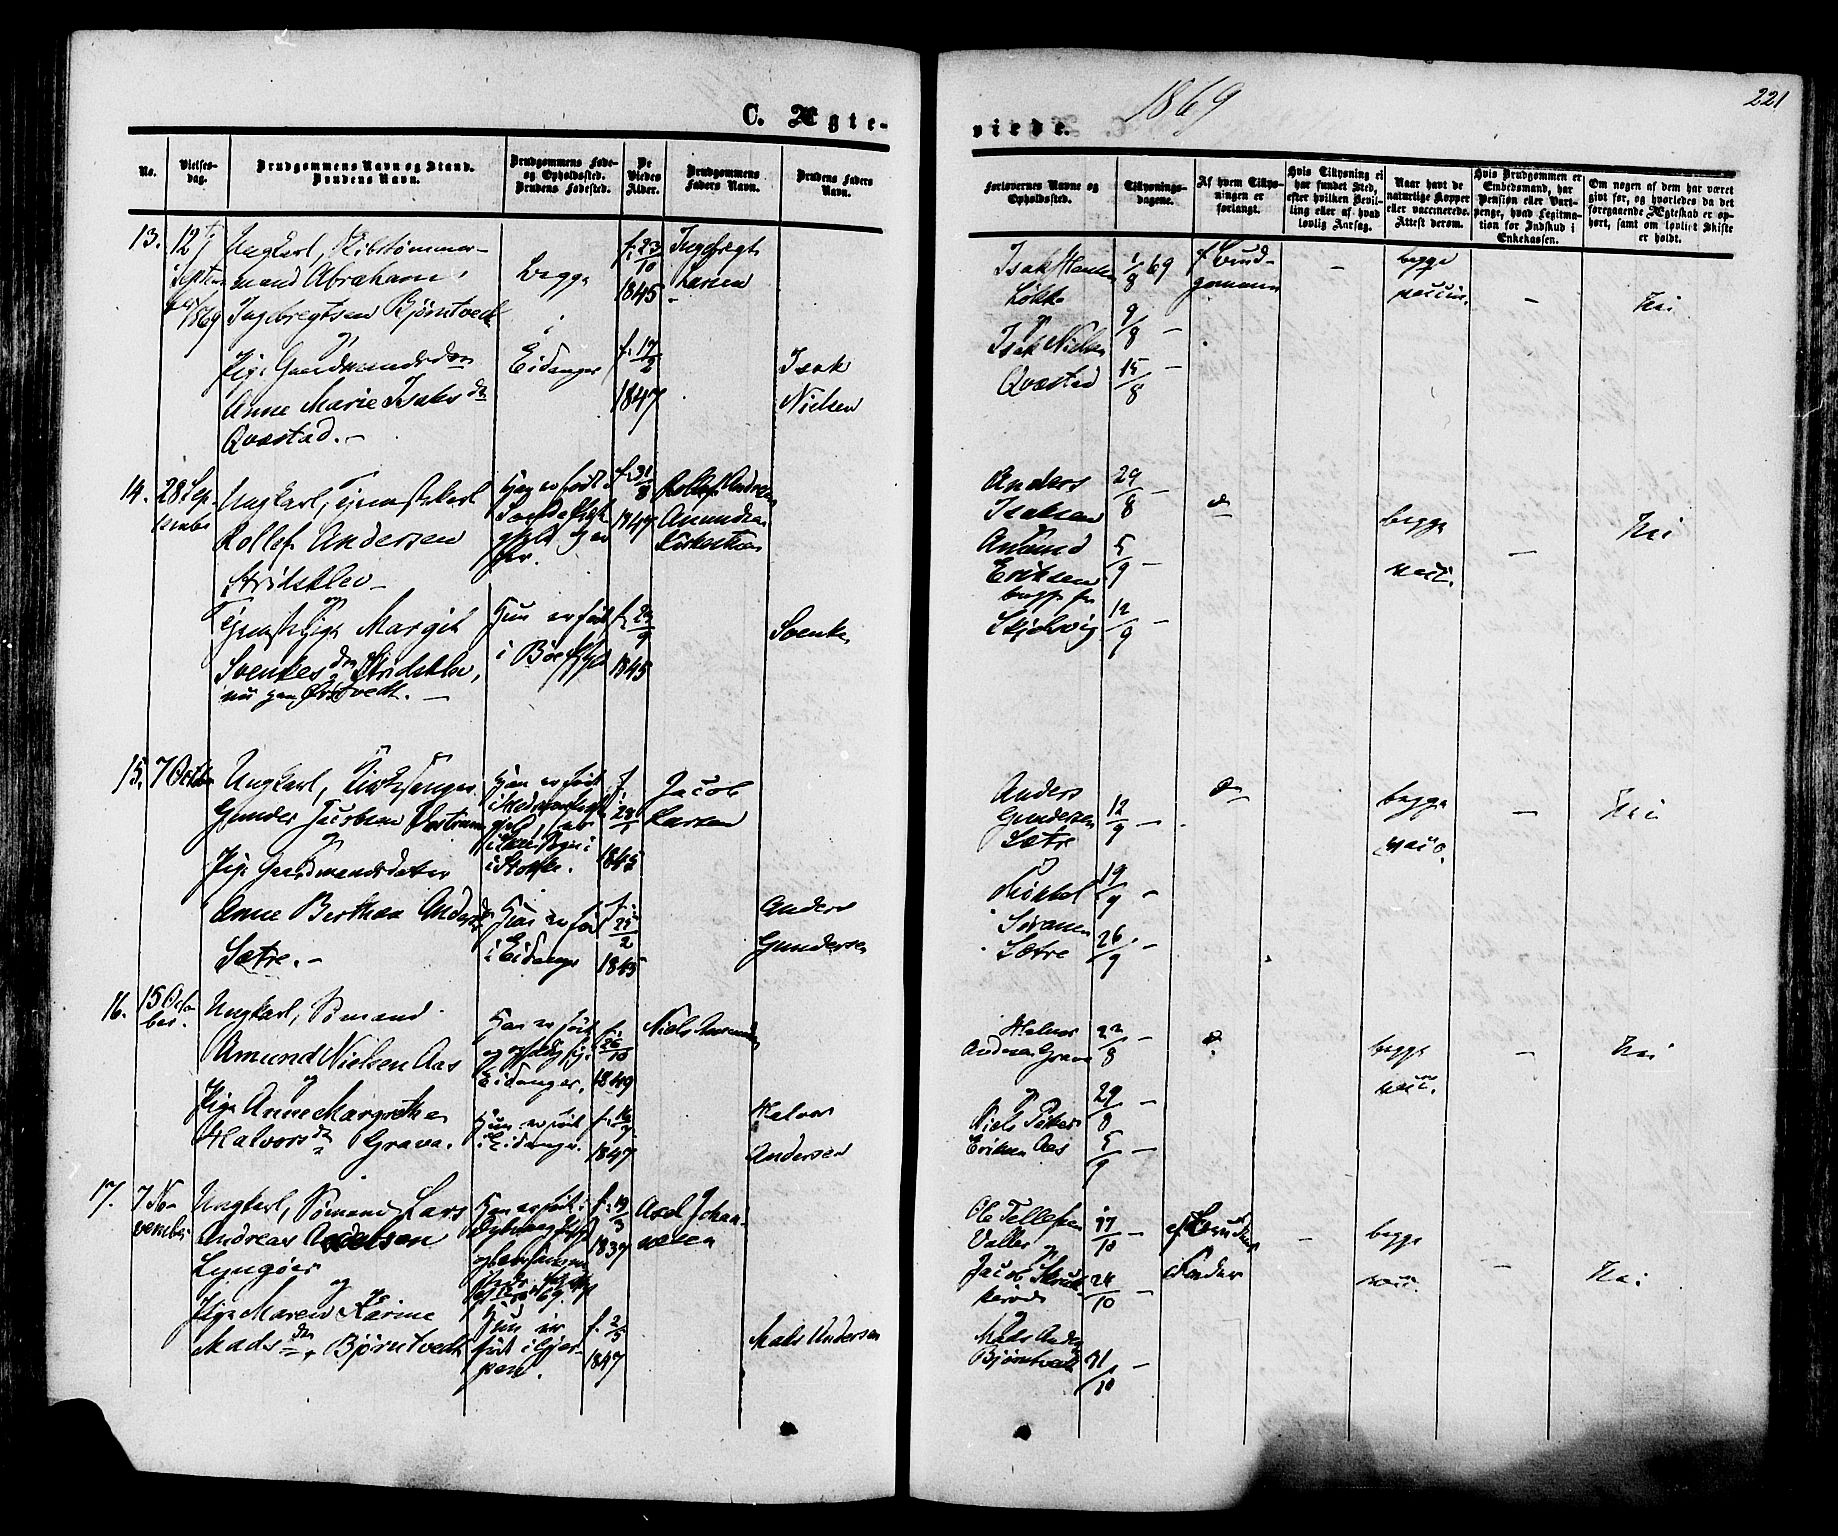 C. Ægte-
vielse.
1869
221
No.
Vielses-
dag.
Brudgommens Navn og Stand.
Brudens Navn.
Brudgommens Føde-
og Opholdssted.
Brudens Fødested.
De
Viedes
Alder.
Brudgommens
Faders Navn.
Brudens Faders
Navn.
Forlovernes Navne og
Opholdssted.
Tillysnings-
dagene.
Af hvem Tillys-
ningen er
forlangt.
Hvis Tillysning ei
har fundet Sted,
efter hvilken Bevil-
ling eller af hvad
lovlig Aarsag.
Naar havt de
naturlige Kopper
eller vaccinerede.
Attest derom.
Hvis Brudgommen er
Embedsmand, har
Pension eller Vart-
penge, hvad Legitima-
tion for Indskud i
Enkekassen.
Om nogen af dem har været
gift før, og hvorledes da det
foregaaende Ægteskab er op-
hørt, samt om lovligt Skifte
er holdt.
13.
12
1869
Ungkarl, Skibstømmer-
mand Abraham
Ingebregtsen Bjørntvedt
og
Pige Gaardmandsdatter
Anne Marie Isaksdn
Qvæstad.
begge
i
Eidanger
f. 23/10
1845
f. 17/2
1847
Ingebregt
Larsen
Isak
Nielsen
Isak Hansen
Løkke
Isak Nielsen
Qvæstad
1/8 69
9/8 —
15/8 —
f. Brud-
gommen
begge
vaccin.
Nei
14.
28 Sep-
tember
Ungkarl, tjenestekarl
Rollef Andersen
Stridsklev
og
Tjenestepige Margit
Svenkesdn Stridsklev,
nu paa Ørstvedt.
Han er født i
Hun er født
i Bøe
f. 31/8
1847
f. 29/9
1845
Rollef Andreas
Amundsen
Svenke
Anders
Isaksen
Amund
Eriksen
begge fra
Skjelsvig
29/8 —
5/9 —
12/9 —
do
begge
vacc.
Nei
15.
7 October
Ungkarl, Kirkesanger
Gunder Jacobsen
og
Pige Gaardmandsdatter
Anne Berthea Andersdn
Sætre.
Han er født
Hun er født
i Eidanger
f.
1845
f. 22/2
1845
Jacob
Larsen
Anders
Gundersen
Anders
Gundersen
Sætre
Mikkel
Sætre
12/9 —
19/9 —
26/9 —
do
begge
vacc.
Nei
16.
15 Octo-
ber.
Ungkarl, Sømand
Amund Nielsen Aas
og
Pige Anne Margrethe
Halvorsdn Grava.
Han er født
Eidanger.
Hun er født
i Eidanger.
f. 26/10
1849
f.
1847
Niels Amundsen
Halvor
Andersen
Halvor
Andersen Grava
og
Niels Peter
Eriksen Aas
22/8 —
29/8 —
5/9 —
do
begge
vacc.
Nei
17.
7 No-
vember
Ungkarl, Sømand Lars
Andreas Axelsen
Lyngøer
og
Pige Maren Karine
Madsdn Bjørntvedt
Han er født i
Hun er
født i Gjer-
pen.
f. 19/3
1837
f. 2/5
1847
Axel Johan-
nesen
Mads Andersen
Ole Tellefsen
Valler
og
Jacob
Mads Anders
Bjørntvedt
17/10 —
24/10 —
31/10 —
af Brudens
Fader
begge
vacc.
Nei